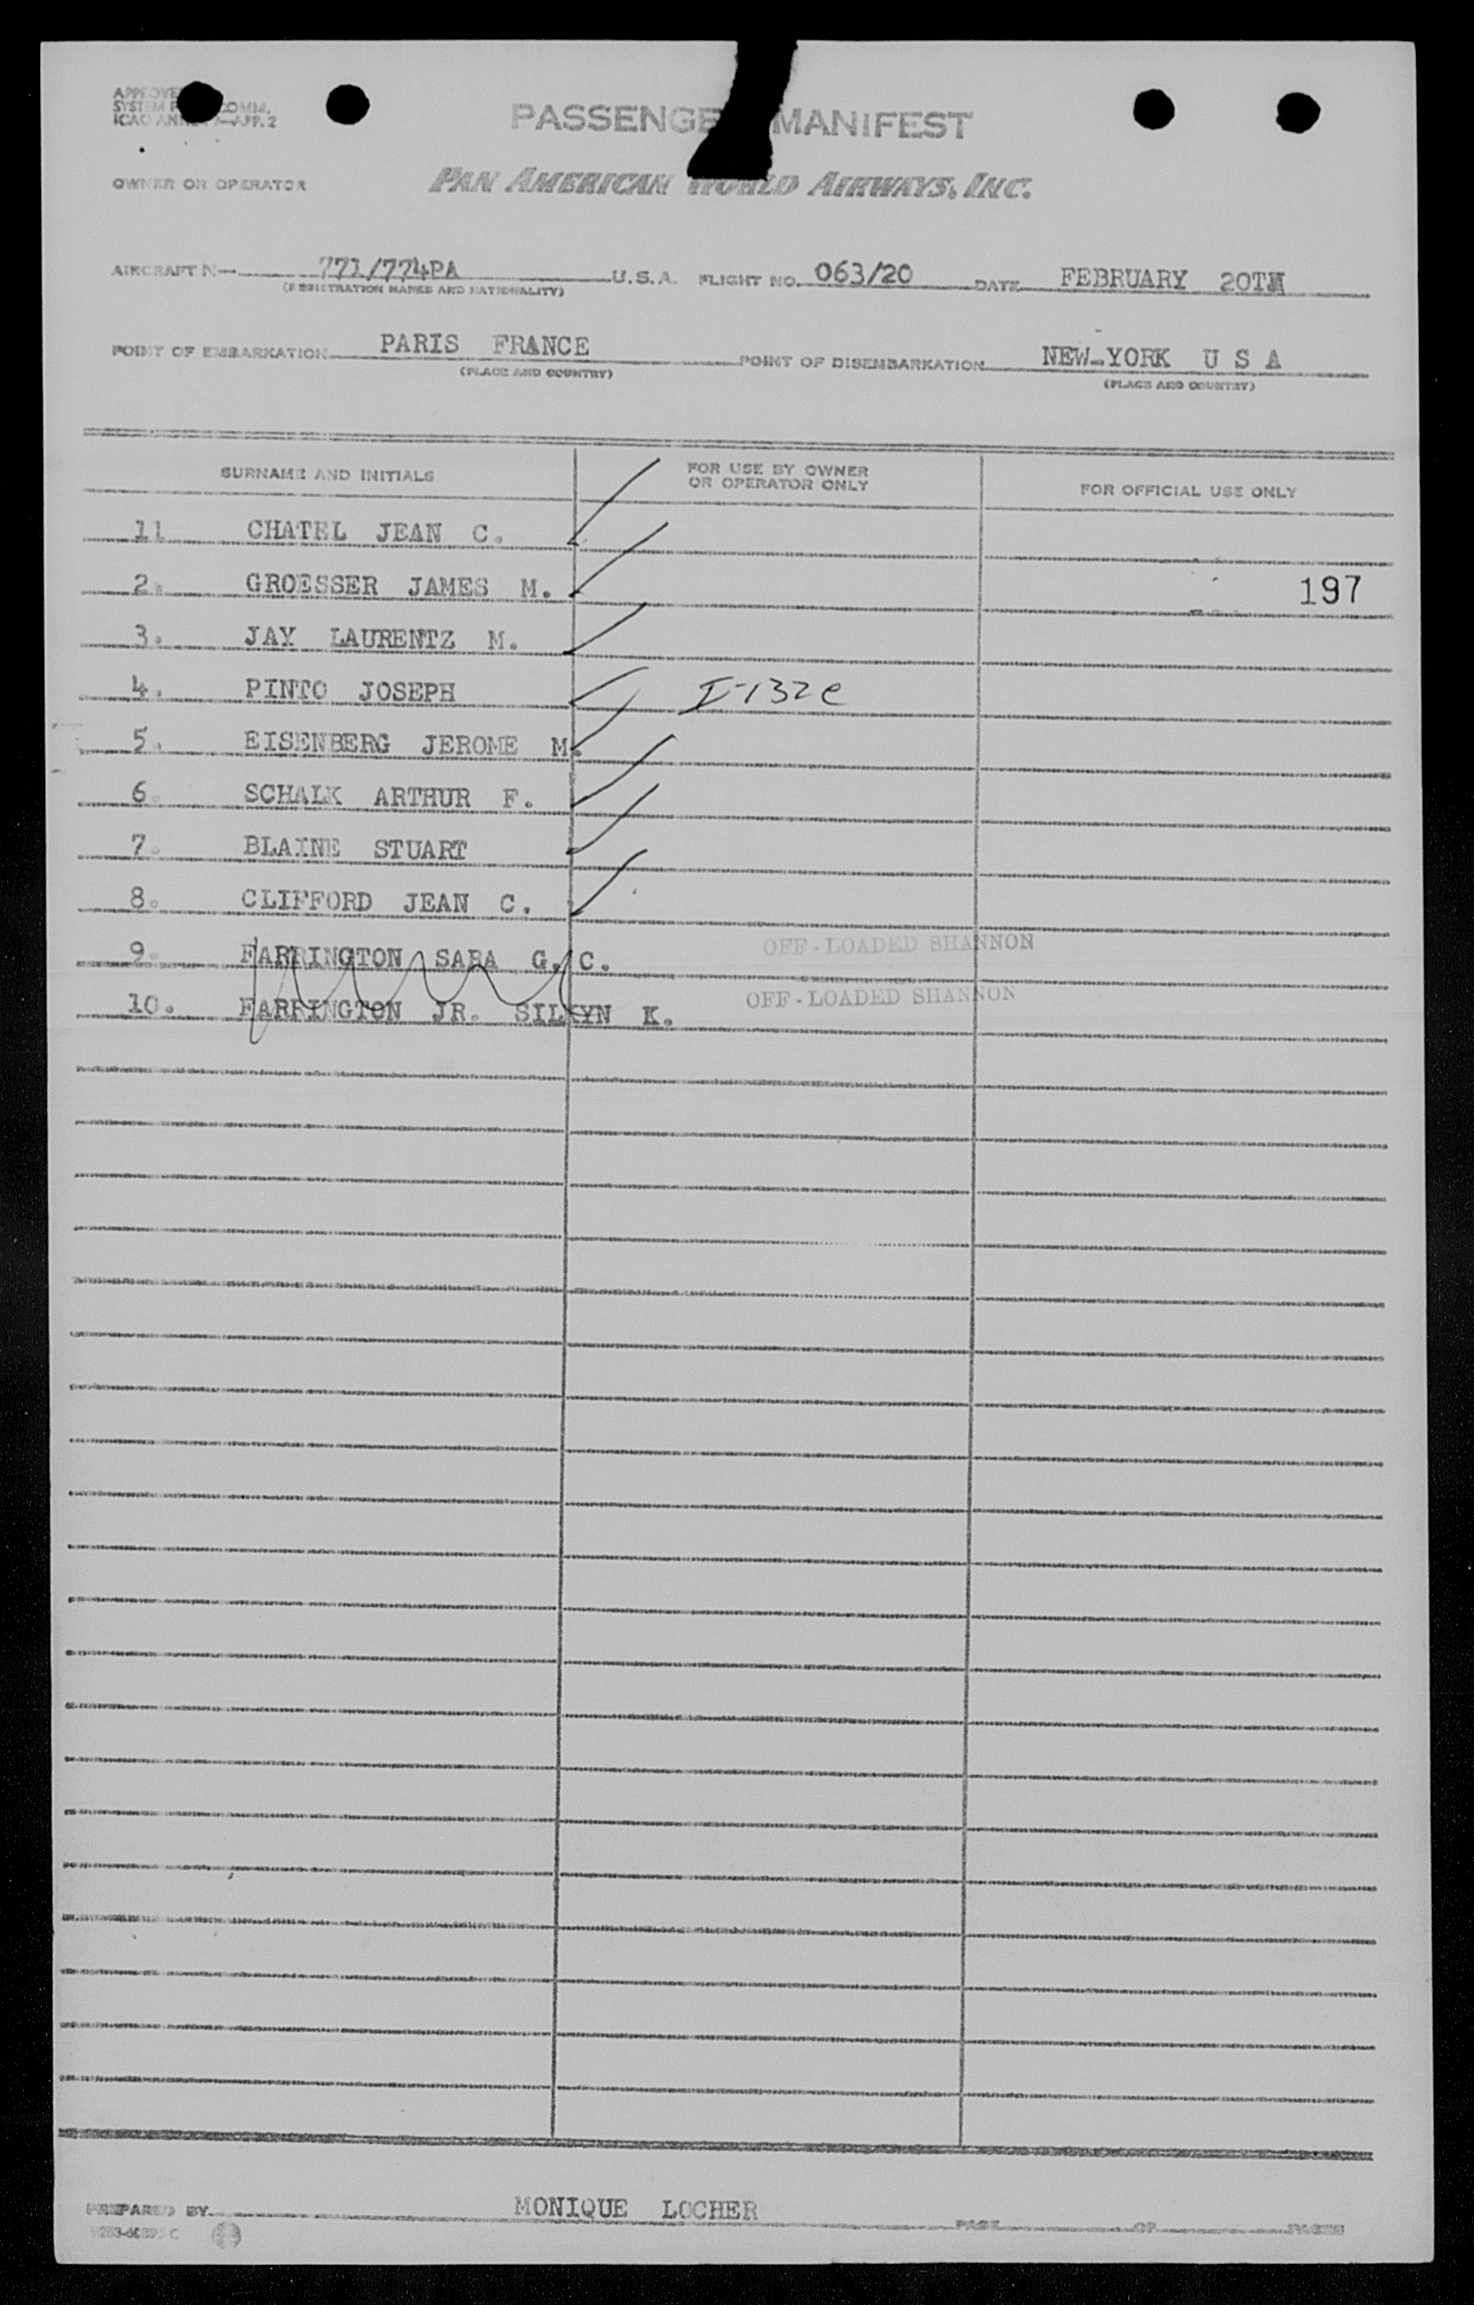 APPROVE
SYSTEM F COMM.
ICAO ANN 9—APP. 2
PASSENGE MANIFEST
OWNER OR OPERATOR PAN AMERICAN WORLD AIRWAYS, INC.
AIRCRAFT N— 771/774PA U.S.A. FLIGHT NO. 063/20 DATE FEBRUARY 20TH
(REGISTRATION MARKS AND NATIONALITY)
POINT OF EMBARKATION PARIS FRANCE POINT OF DISEMBARKATION NEW-YORK U S A
(PLACE AND COUNTRY) (PLACE AND COUNTRY)
SURNAME AND INITIALS FOR USE BY OWNER OR OPERATOR ONLY FOR OFFICIAL USE ONLY
11 CHATEL JEAN C.
2. GROESSER JAMES M. 197
3. JAY LAURENTZ M.
4. PINTO JOSEPH I-132e
5. EISENBERG JEROME M.
6. SCHALK ARTHUR F.
7. BLAINE STUART
8. CLIFFORD JEAN C.
9. FARRINGTON SARA G. C. OFF-LOADED SHANNON
10. FARRINGTON JR. K. OFF-LOADED SHANNON
PREPARED BY MONIQUE LOCHER PAGE OF PAGES